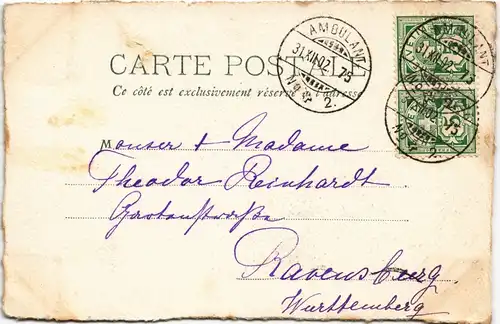 AMBULANT
31.XII.02.
No
2.
CARTE POSTALE
Ce côté est exclusivement réservé à l'adresse.
Monseur & Madame
Theodor Reinhardt
Gartenstraße
Ravensberg
Württemberg